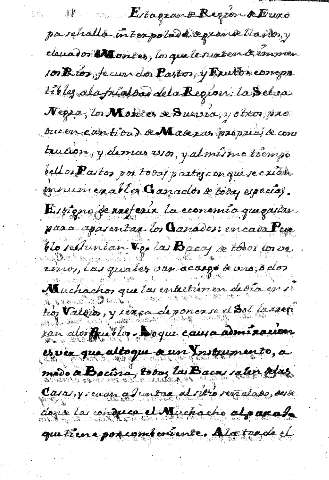 Esta gran Region de Euro
pa se halla interpolada de grandes llanos, y
elevados Montes, los que le surten de immen
sos Rios, fecundos Pastos, y Frutos compa
tibles a la frialdad de la Region: la Selva
Negra, los Montes de Suevia, y otros, pro
ducen cantidad de Maderas propias de cons
truccion, y demas usos, y al mismo tiempo
bellos Pastos por todas partes, con que se crian
innumerables Ganados de todas especies.
Es digno de referir la economia que gastan
para apasentar los Ganados: en cada Pue
blo se juntan las Bacas de todos los ve
cinos, las quales van a cargo de uno, o dos
Muchachos que las entretienen de dia en si
tios Valdios, y serca de ponerse el Sol las reti
ran a los Pueblos. Lo que causa admiracion
es ver que al toque de un Ynstrumento, a
modo de Bocina, todas las Bacas salen de las
Casas, y se van a juntar al sitio señalado, des
donde las conduce el Muchacho al parage
que tiene por combeniente. A la tarde el